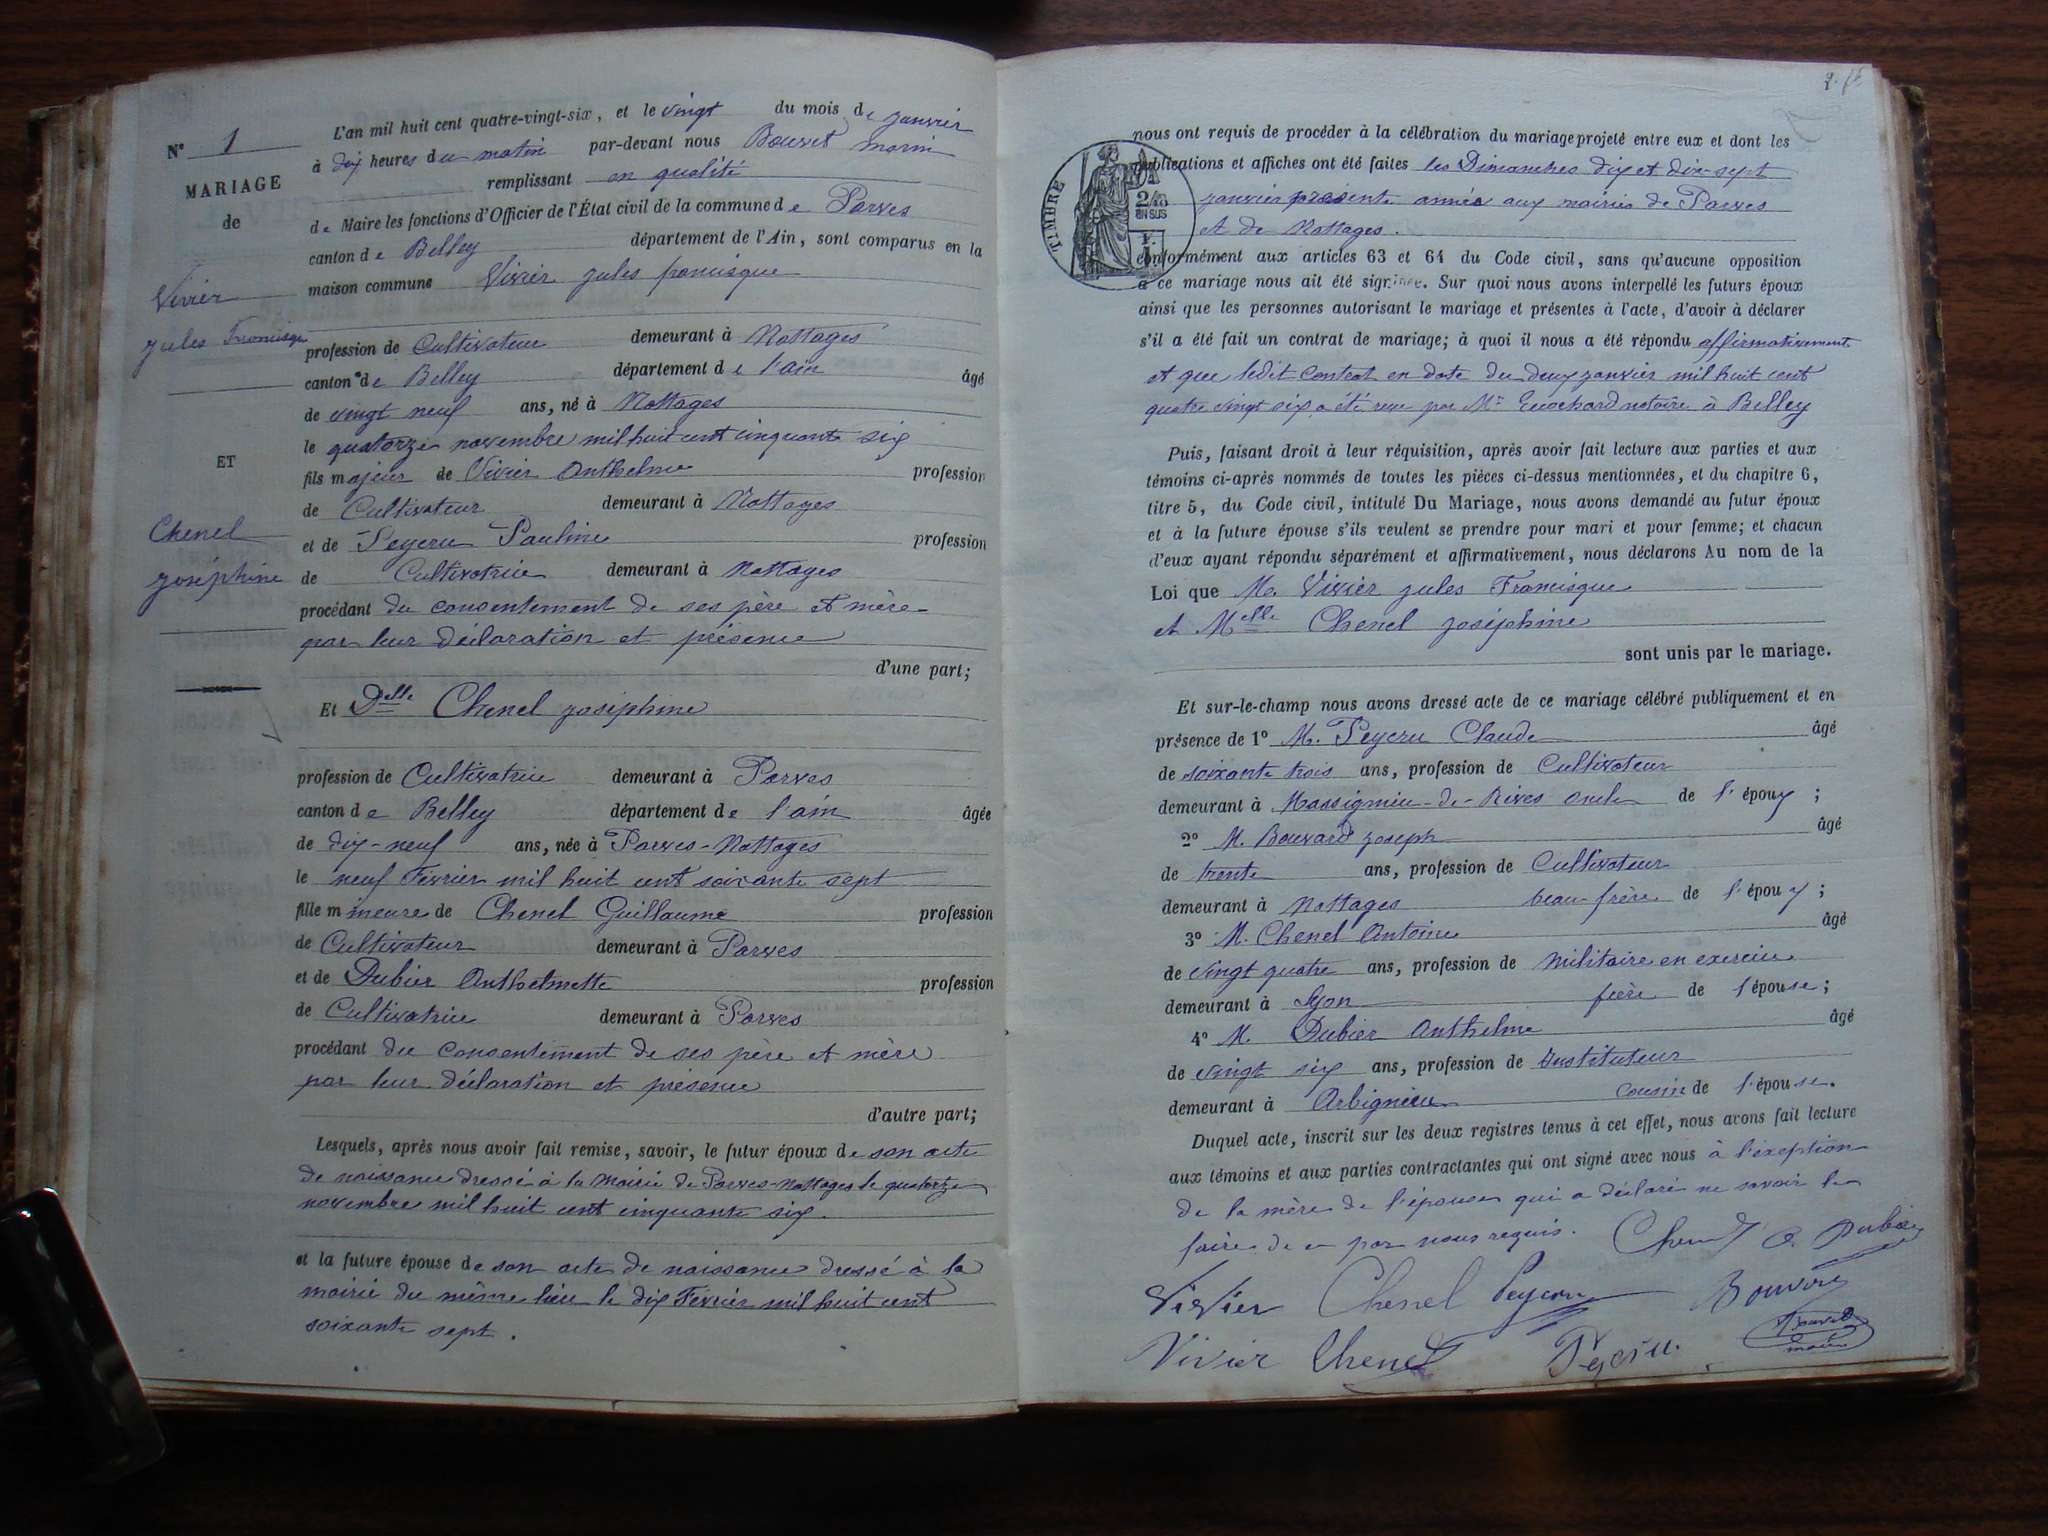 L'an mil huit cent quatre-vingt-six, et le vingt du mois de janvier
N° 1
à dix heures du matin par-devant nous Bouvet marin
MARIAGE
remplissant en qualité
de
de Maire les fonctions d'Officier de l'État civil de la commune de Parves
canton de Belley département de l'Ain, sont comparus en la
maison commune Vivier jules francisque
Vivier
jules Francisque
profession de Cultivateur demeurant à Nattages
canton de Belley département de l'ain âgé
de vingt neuf ans, né à Nattages
le quatorze novembre mil huit cent cinquante six
ET
fils majeur de Vivier Anthelme profession
de Cultivateur demeurant à Nattages
Chenel
joséphine
et de Peyeru Pauline profession
de Cultivatrice demeurant à Nattages
procédant du consentement de ses père et mère
par leur déclaration et présence
d'une part;
Et Delle Chenel joséphine
profession de Cultivatrice demeurant à Parves
canton de Belley département de l'ain âgée
de dix-neuf ans, née à Parves-Nattages
le neuf Février mil huit cent soixante sept
fille mineure de Chenel Guillaume profession
de Cultivateur demeurant à Parves
et de Dubier Anthelmette profession
de Cultivatrice demeurant à Parves
procédant du consentement de ses père et mère
par leur déclaration et présence
d'autre part;
Lesquels, après nous avoir fait remise, savoir, le futur époux de son acte
de naissance dressé à la Mairie de Parves-Nattages le quatorze
novembre mil huit cent cinquante six.
et la future épouse de son acte de naissance dressé à la
mairie du même lieu le dix Février mil huit cent
soixante sept.
nous ont requis de procéder à la célébration du mariage projeté entre eux et dont les
publications et affiches ont été faites les Dimanches dix et dix-sept
janvier présente année aux mairies de Parves
et de Nattages.
TIMBRE
2/10
EN SUS
conformément aux articles 63 et 64 du Code civil, sans qu'aucune opposition
à ce mariage nous ait été signifiée. Sur quoi nous avons interpellé les futurs époux
ainsi que les personnes autorisant le mariage et présentes à l'acte, d'avoir à déclarer
s'il a été fait un contrat de mariage; à quoi il nous a été répondu affirmativement
et que ledit Contrat en date du deux janvier mil huit cent
quatre vingt six a été reçu par Me notaire à Belley
Puis, faisant droit à leur réquisition, après avoir fait lecture aux parties et aux
témoins ci-après nommés de toutes les pièces ci-dessus mentionnées, et du chapitre 6,
titre 5, du Code civil, intitulé Du Mariage, nous avons demandé au futur époux
et à la future épouse s'ils veulent se prendre pour mari et pour femme; et chacun
d'eux ayant répondu séparément et affirmativement, nous déclarons Au nom de la
Loi que M. Vivier jules Francisque
et Melle Chenel joséphine
sont unis par le mariage.
Et sur-le-champ nous avons dressé acte de ce mariage célébré publiquement et en
présence de 1° M. Peyeru Claude âgé
de soixante trois ans, profession de Cultivateur
demeurant à Massignieu-de-Rives oncle de l'époux ;
2° M. Bouvard joseph âgé
de trente ans, profession de Cultivateur
demeurant à Nattages beau-frère de l'époux ;
3° M. Chenel Antoine âgé
de vingt quatre ans, profession de Militaire en exercice
demeurant à Lyon frère de l'épouse ;
4° M. Dubier Anthelme âgé
de vingt six ans, profession de Instituteur
demeurant à Arbignieu cousin de l'épouse.
Duquel acte, inscrit sur les deux registres tenus à cet effet, nous avons fait lecture
aux témoins et aux parties contractantes qui ont signé avec nous à l'exeption
de la mère de l'épouse qui a déclaré ne savoir le
faire de ce par nous requis. Chenel A. Dubier
Vivier Chenel Peyeru Bouvard
Vivier Chenel Peyeru Bouvet
maire